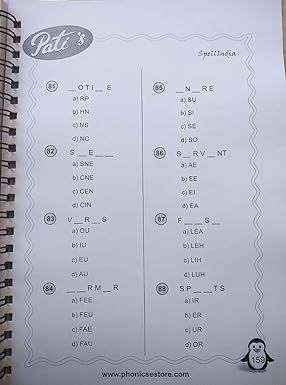 Pati's
SpellIndia
81 _OTI_E
a) RP
b) HN
c) NS
d) NC
82 S_E_ _
a) SNE
b) CNE
c) CEN
d) CIN
83 V_R_S
a) OU
b) IU
c) EU
d) AU
84 _ _RM_R
a) FEE
b) FEU
c) FAE
d) FAU
85 _N_RE
a) SU
b) SI
c) SE
d) SO
86 S_RV_NT
a) AE
b) EE
c) EI
d) EA
87 F_ _S_
a) LEA
b) LEH
c) LIH
d) LUH
88 SP_ _TS
a) IR
b) ER
c) UR
d) OR
www.phonicsestore.com
159